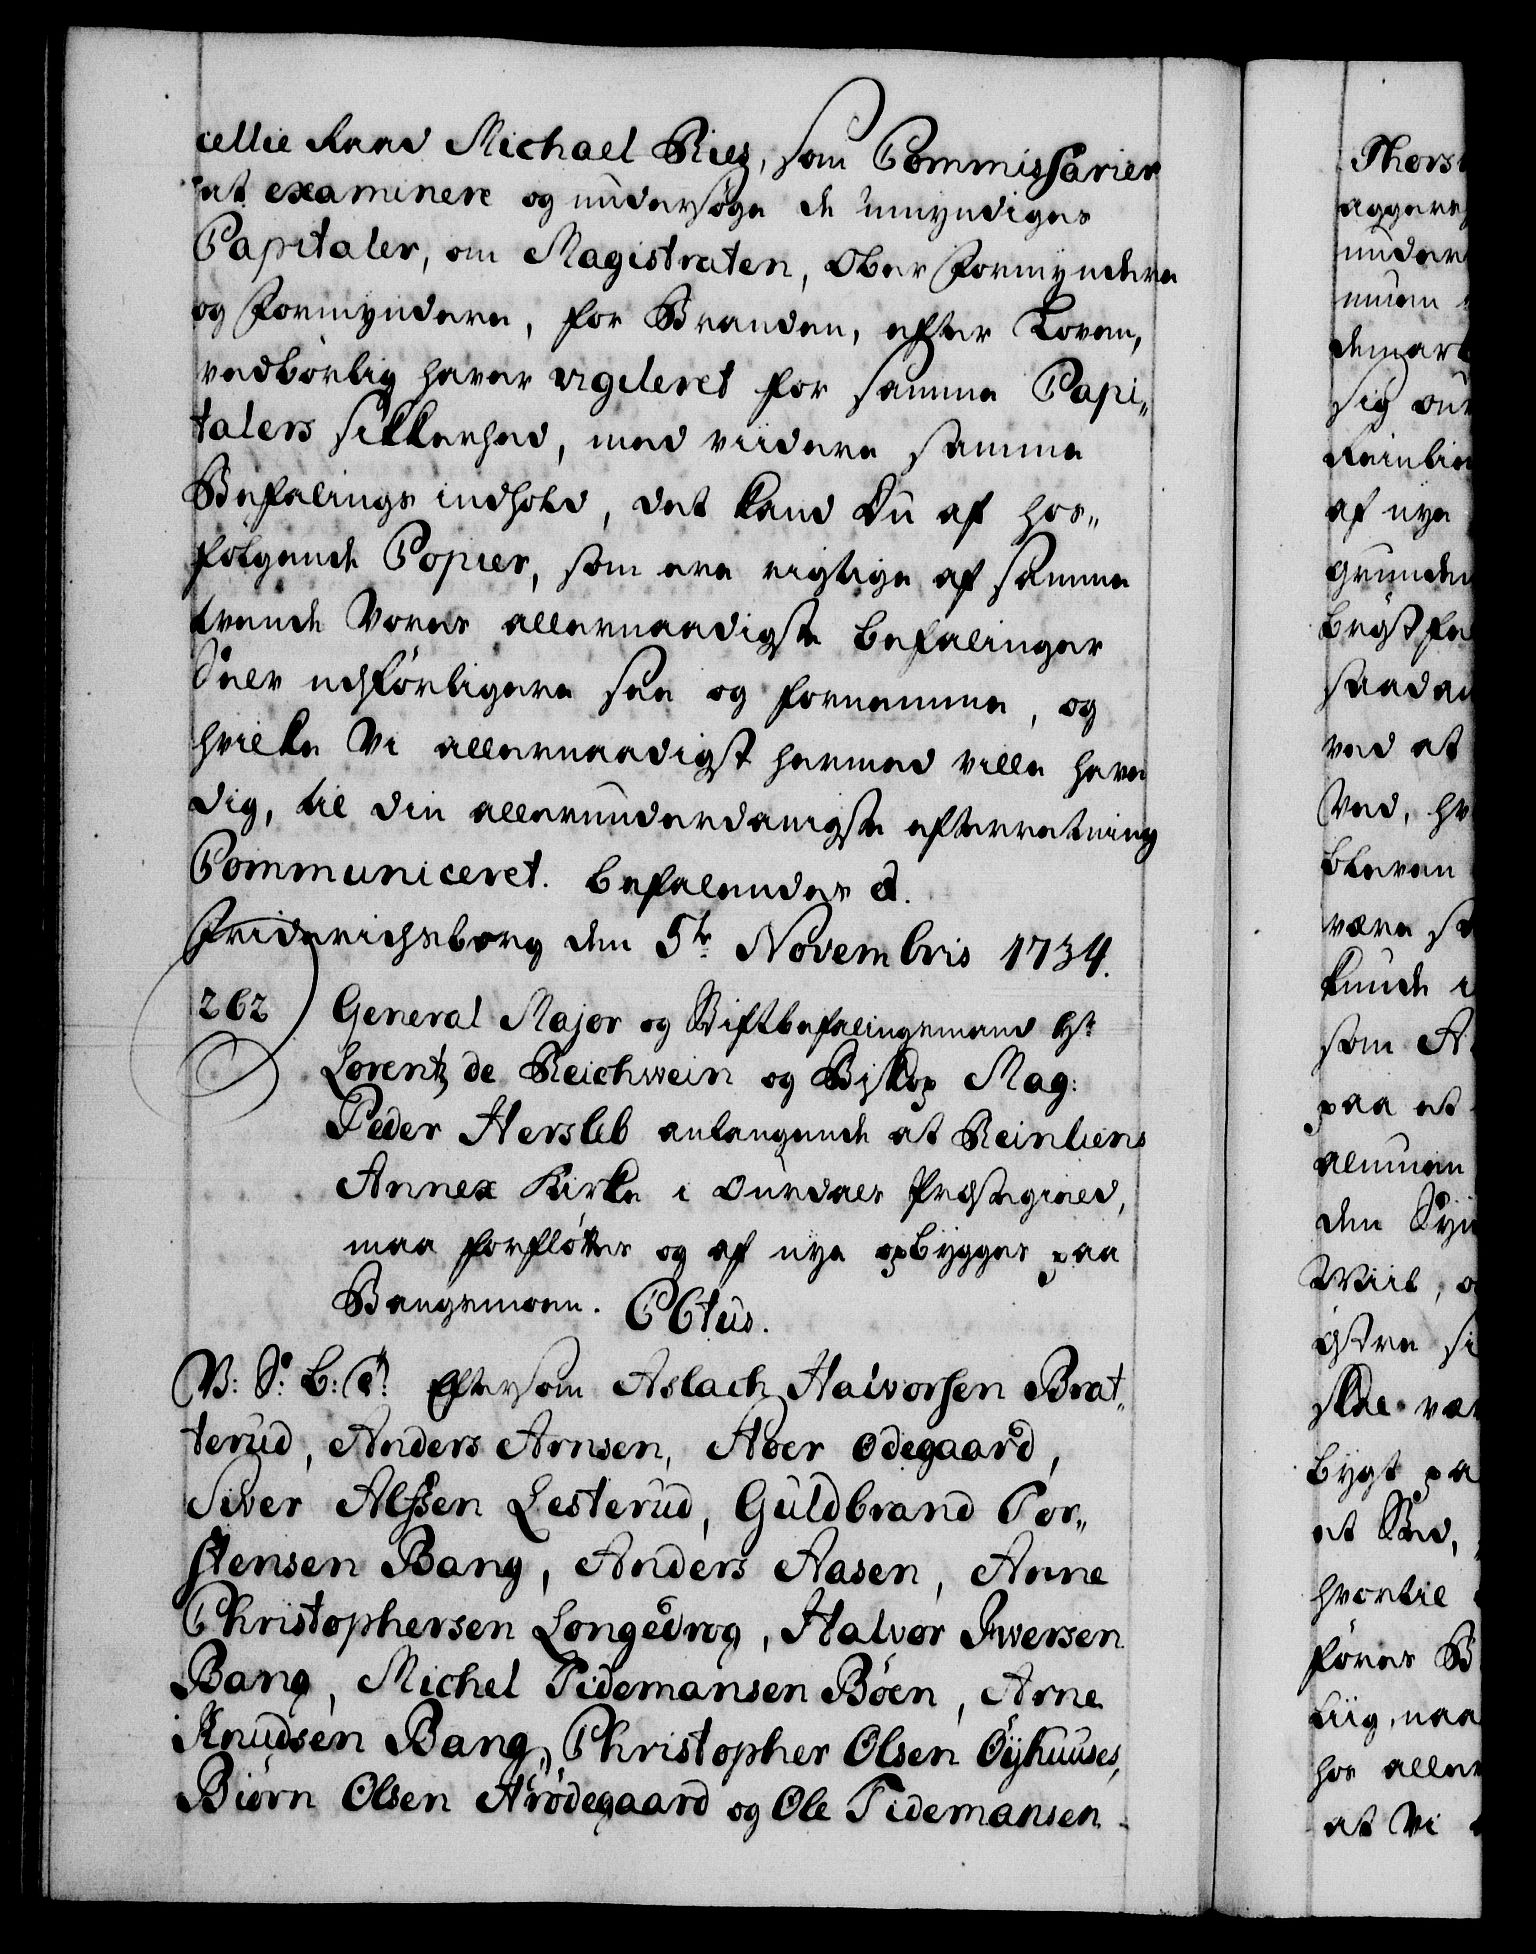 cellie Raad Michael Ries, som Commissarier
at examinere og undersøge de umyndiges
Capitaler, om Magistraten, Ober Formyndere
og Formyndere, for Branden, efter Loven,
vedbörlig haver vigileret for samme Capi„
talers sikkerhed, med viidere samme
Befalings indhold, det kand Du af hos„
følgende Copier, som ere rigtige af samme
trende Vores allernaadigste befalinger
Selv udførligere see og fornemme, og
hvilke Vi allernaadigst hermed ville have
dig, til din allerunderdanigste efterretning
Communiceret. befalendes &.
Friderichsborg den 5te Novembris 1734.
262 General Major og Stiftbefalingsmand Hr
Lorentz de Reichwein og Biskop Mag:
Peder Hersleb anlangende at Reinliens
Annex Kirke i Ourdals Præstegield,
maa forfløttes og af nye opbygges paa
Bangemoen. Cctus.
V: S: B: T: Eftersom Aslach Halvorsen Brat„
terud, Anders Arnsen, Aver Odegaard,
Siver Alfsen Lesterud, Guldbrand Tor„
stensen Bang, Anders Aasen, Arne
Christophersen Longedrog, Halvor Iwersen
Bang, Michel Tidemansen Böen, Arne
Knudsen Bang, Christopher Olsen Öÿhuuses,
Biörn Olsen Arödegaard og Ole Tidemansen
Thors
aggere
under
muen
demark
sig our
Reinlie
af nye
grunden
brøstfe
saadan
ved at
Ved, hv
bleven
være s
kunde
som A
paa et
almuen
den Syn
Wiil, o
östre si
skal vær
bygt pa
et Sted,
hvortil
føres B
Liig, naa
hos aller
at Vi